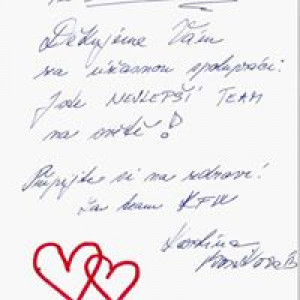 Děkujeme Vám
za úžasnou spolupráci!
Jste NEJLEPŠÍ TEAM
na světě!
Připijte si na zdraví!
Za team KFW